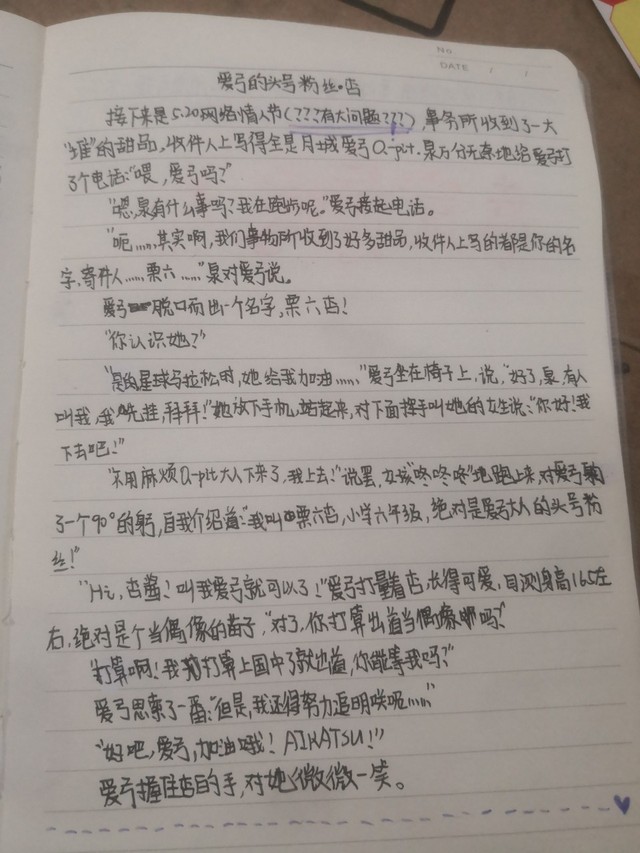 No.
DATE / /
爱弓的头号粉丝·杏
接下来是5.20网络情人节(???有大问题???),事务所收到了一大
"堆"的甜品,收件人上写得全是月城爱弓Q-pit.泉万分无奈地给爱弓打
了个电话:"喂,爱弓吗?"
"嗯,泉有什么事吗?我在跑步呢。"爱弓接起电话。
"呃……其实啊,我们事务所收到了好多甜品,收件人上写的都是你的名
字,寄件人……栗六……"泉对爱弓说。
爱弓脱口而出一个名字,栗六杏!
"你认识她?"
"是的星球马拉松时,她给我加油……"爱弓坐在椅子上,说,"好了,泉,有人
叫我,我先挂,拜拜!"她放下手机,站起来,对下面挥手叫她的女生说:"你好!我
下去吧!"
"不用麻烦Q-pit大人下来了,我上去!"说罢,女孩"咚咚咚"地跑上来,对爱弓鞠
了一个90°的躬,自我介绍道:"我叫栗六杏,小学六年级,绝对是爱弓大人的头号粉
丝!"
"Hi,杏酱!叫我爱弓就可以了!"爱弓打量着杏,长得可爱,目测身高165左
右,绝对是个当偶像的苗子,"对了,你打算出道当偶像吗?"
"打算啊!我打算上国中了就出道,你能等我吗?"
爱弓思索了一番:"但是,我还得努力追明咲呢……"
"好吧,爱弓,加油哦!AIKATSU!"
爱弓握住杏的手,对她微微一笑。